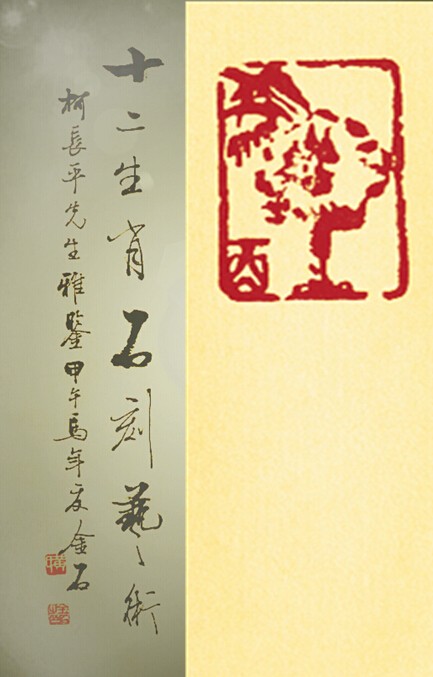 十二生肖石刻藝術
柯長平先生雅鑒甲午馬年夏金石
酉